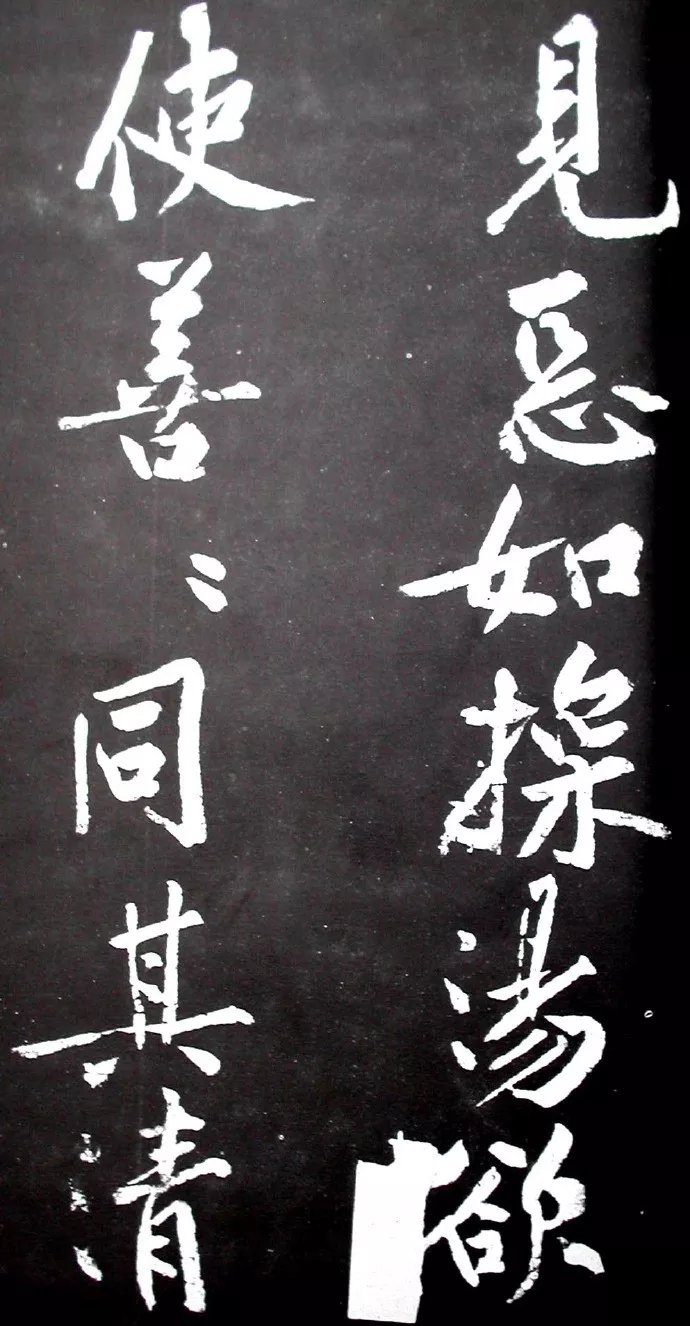 見惡如探湯欲
使善〻同其清